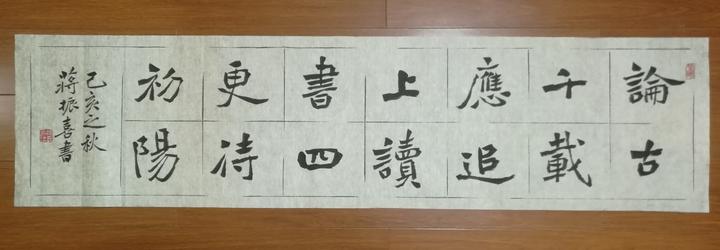 論古
千載
應追
上讀
書四
更待
初陽
己亥之秋
蔣振喜書